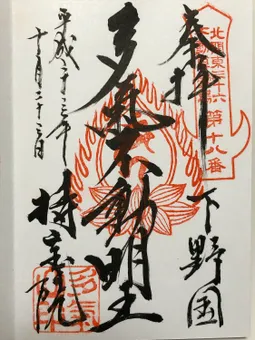 奉拝
下野国
北関東三十六
不動尊
第十八番
多気不動明王
平成二十三年
十月二十三日
持宝院